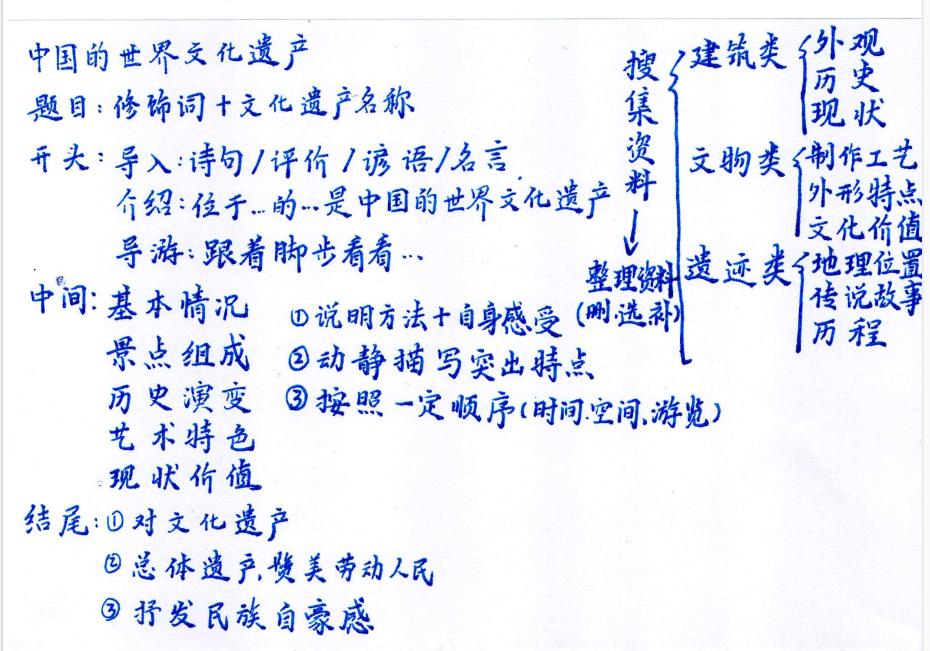 中国的世界文化遗产
题目:修饰词+文化遗产名称
开头:导入:诗句/评价/谚语/名言
介绍:位于…的…是中国的世界文化遗产
导游:跟着脚步看看…
中间:基本情况
景点组成
历史演变
艺术特色
现状价值
①说明方法+自身感受
②动静描写突出特点
③按照一定顺序(时间.空间.游览)
结尾:①对文化遗产
②总体遗产,赞美劳动人民
③抒发民族自豪感
搜集资料
↓
整理资料
(删.选.补)
建筑类
外观
历史
现状
文物类
制作工艺
外形特点
文化价值
遗迹类
地理位置
传说故事
历程